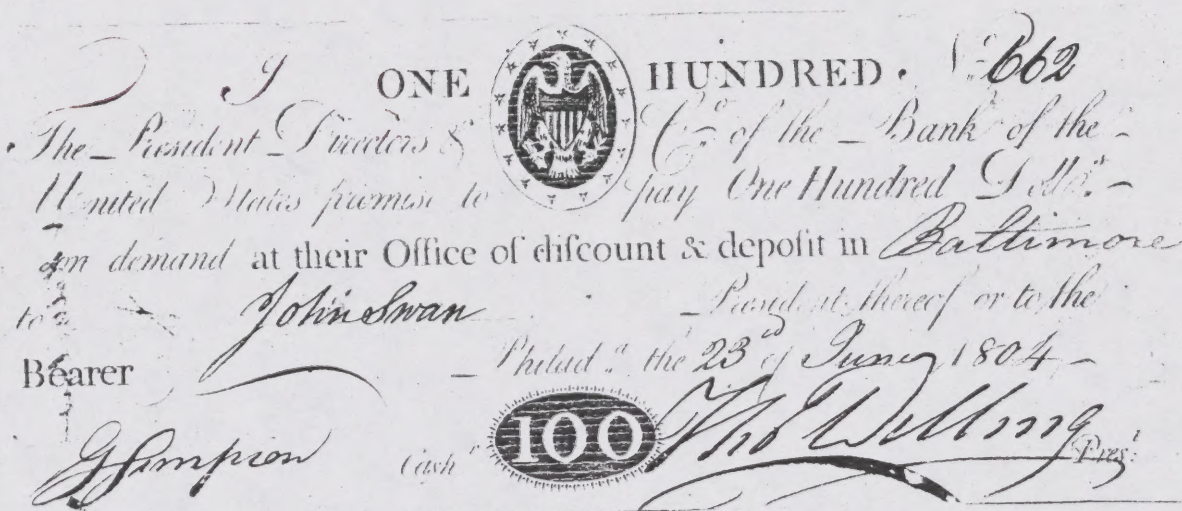 I ONE HUNDRED. No. 662
The President Directors & Co. of the Bank of the
United States promise to pay One Hundred Dollrs.
on demand at their Office of diſcount & depoſit in Baltimore
to John Swan President thereof or to the
Bearer Philada. the 23d of June 1804
G Simpson Cashr. 100 Tho Willing Prest.